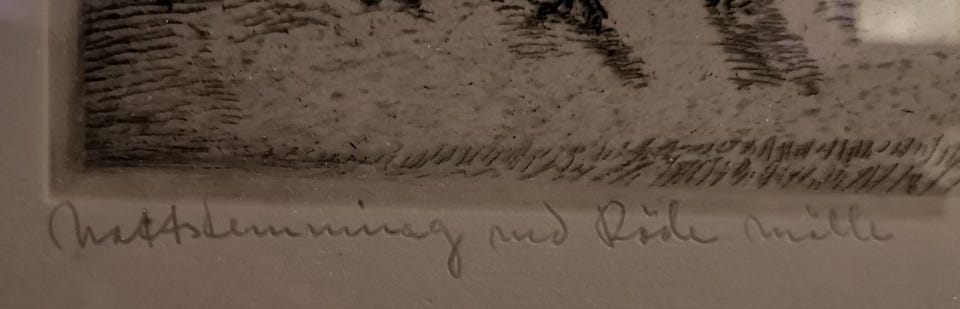 Nattstemming ved Röde mölle